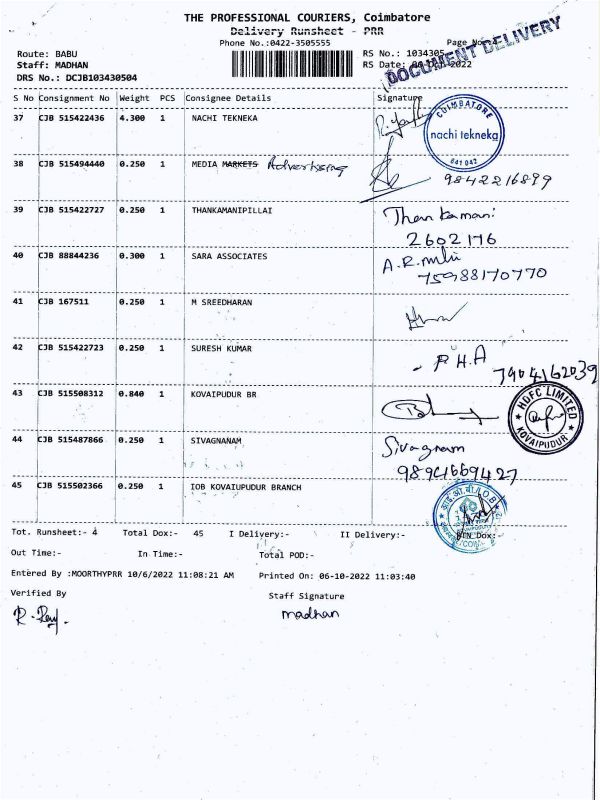 THE PROFESSIONAL COURIERS, Coimbatore
Delivery Runsheet - PRR
Phone No.:0422-3505555
Page No
DOCUMENT DELIVERY
Route: BABU
RS No.: 1034305
Staff: MADHAN
RS Date: 2022
DRS No.: DCJB103430504
S No Consignment No Weight PCS Consignee Details Signature
37 CJB 515422436 4.300 1 NACHI TEKNEKA
COIMBATORE
nachi tekneka
641 042
38 CJB 515494440 0.250 1 MEDIA MARKETS Advertising
9842216899
39 CJB 515422727 0.250 1 THANKAMANIPILLAI Thankamani
2602176
40 CJB 88844236 0.300 1 SARA ASSOCIATES
75988170770
41 CJB 167511 0.250 1 M SREEDHARAN
42 CJB 515422723 0.250 1 SURESH KUMAR
7904162039
43 CJB 515508312 0.840 1 KOVAIPUDUR BR
HDFC LIMITED
KOVAIPUDUR
44 CJB 515487866 0.250 1 SIVAGNANAM Sivagnam
45 CJB 515502366 0.250 1 IOB KOVAIUPUDUR BRANCH
Tot. Runsheet:- 4 Total Dox:- 45 I Delivery:- II Delivery:- Dox:-
Out Time:- In Time:- Total POD:-
Entered By :MOORTHYPRR 10/6/2022 11:08:21 AM Printed On: 06-10-2022 11:03:40
Verified By Staff Signature
madhan